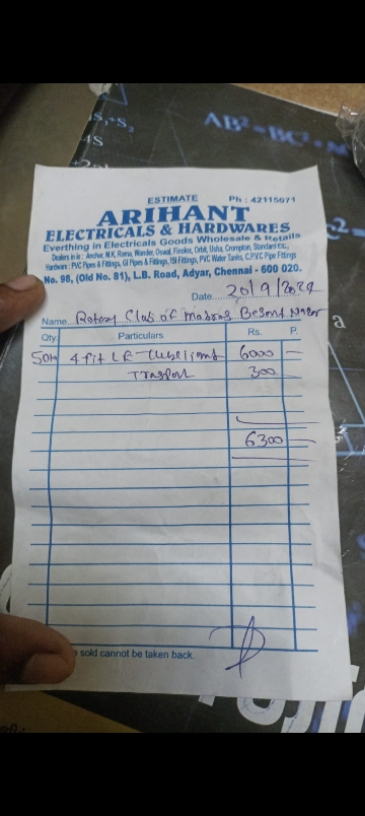 ESTIMATE Ph : 42115671
ARIHANT
ELECTRICALS & HARDWARES
Everthing in Electricals Goods Wholesale & Retails
Dealers in is : Anchor, M.K, Roma, Wander, Oswal, Finolex, Orbit, Usha, Crompton, Standard Etc.,
Hardware : PVC Pipes & Fittings, GI Pipes & Fittings, ISI Fittings, PVC Water Tanks, C.P.V.C Pipe Fittings
No. 98, (Old No. 81), L.B. Road, Adyar, Chennai - 600 020.
Date 20/9/2024
Name Rotary Club of Madras Besant Nager
Qty. Particulars Rs. P.
50 4 fit 6000 —
Transport 300 —
6300
sold cannot be taken back.
AB² = BC² +